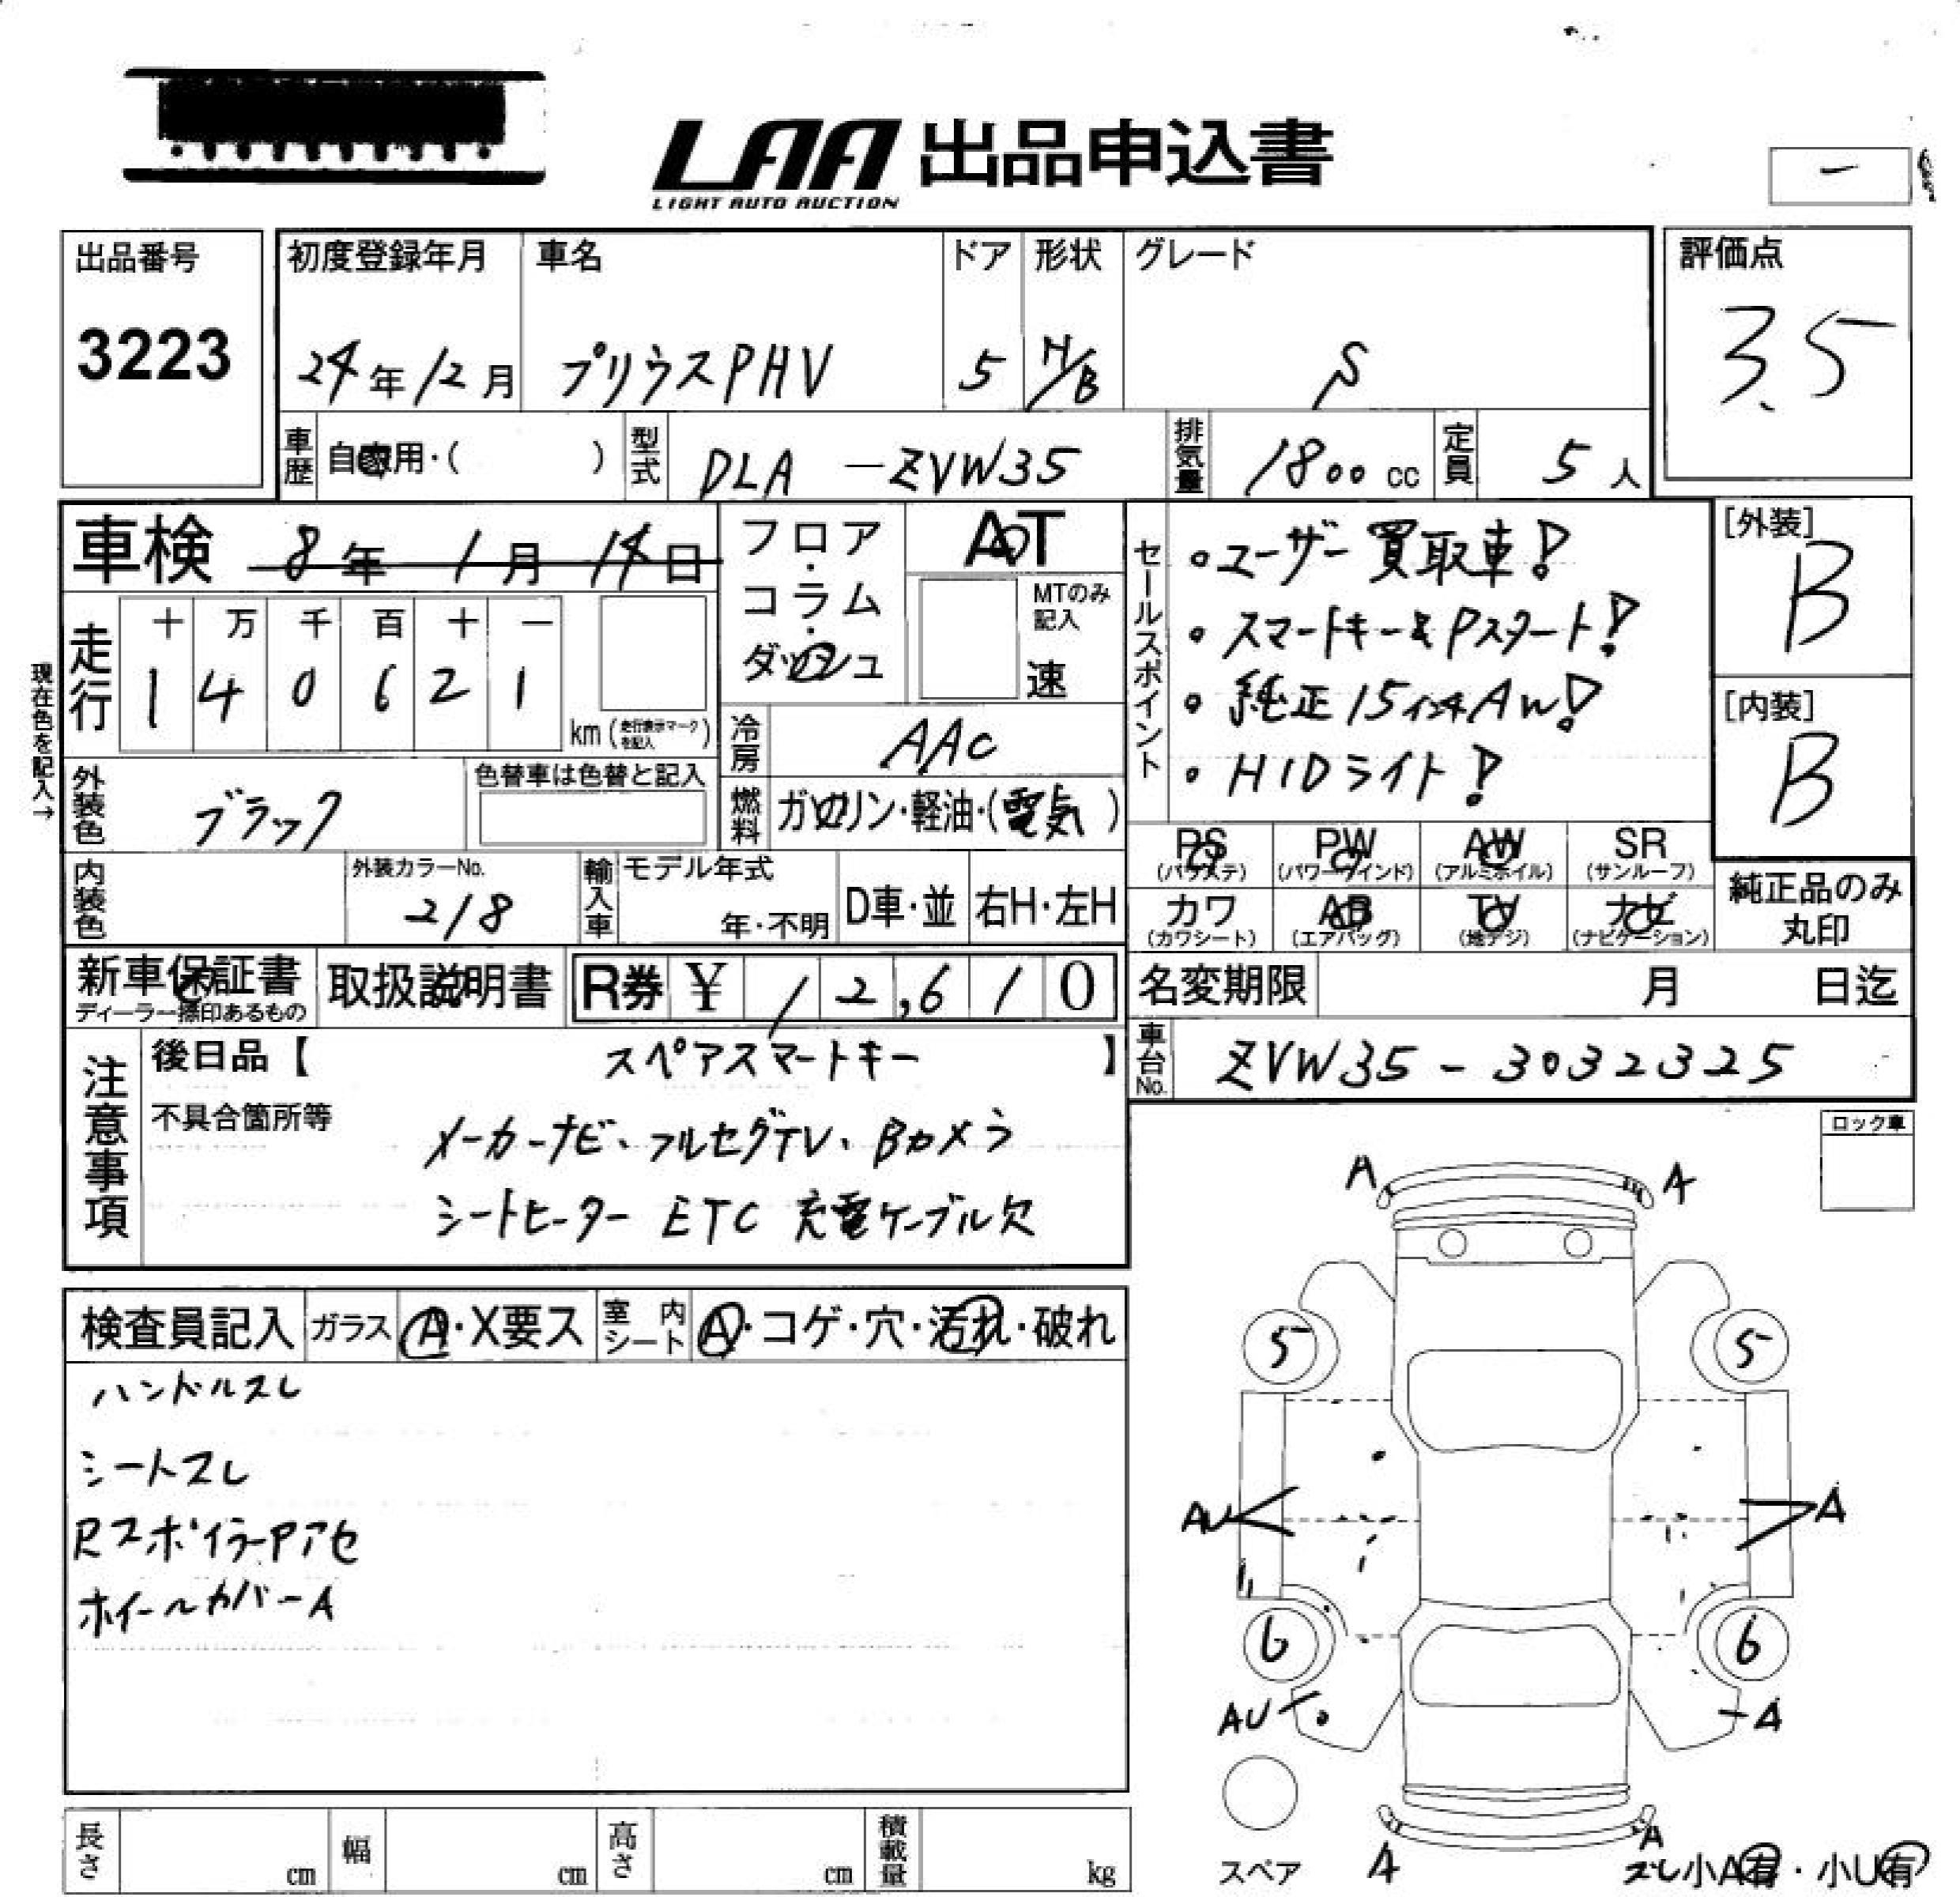 LAA 出品申込書
LIGHT AUTO AUCTION
出品番号
3223
初度登録年月
24年12月
車名
プリウスPHV
ドア
5
形状
H/B
グレード
S
評価点
3.5
車歴 自家用・( )
型式 DLA-ZVW35
排気量 1800cc
定員 5人
車検 8年1月14日
フロア・コラム・ダッシュ
AT
MTのみ記入
速
セールスポイント
・ユーザー買取車!
・スマートキー&Pスタート!
・純正15インチAW!
・HIDライト!
[外装]
B
[内装]
B
現在色を記入→
走行
十 万 千 百 十 一
1 4 0 6 2 1
km(走行表示マークを記入)
冷房 AAC
外装色 ブラック
色替車は色替と記入
燃料 ガソリン・軽油・(電気)
内装色
外装カラーNo.
218
輸入車
モデル年式
年・不明
D車・並
右H・左H
PS (パワステ)
PW (パワーウインド)
AW (アルミホイル)
SR (サンルーフ)
カワ (カワシート)
AB (エアバッグ)
TV (地デジ)
ナビ (ナビゲーション)
純正品のみ丸印
新車保証書
ディーラー捺印あるもの
取扱説明書
R券 ¥ 12,610
名変期限 月 日迄
注意事項
後日品【 スペアスマートキー 】
車台No. ZVW35-3032325
不具合箇所等
メーカーナビ、フルセグTV、Bカメラ
シートヒーター ETC 充電ケーブル欠
ロック車
検査員記入
ガラス A・X要ス
室内シート A・コゲ・穴・汚れ・破れ
ハンドルスレ
シートスレ
Rスポイラーアセ
ホイールカバーA
A A
5 5
AU A
6 6
AU A
スペア
A A
スレ小A有・小U有
長さ cm
幅 cm
高さ cm
積載量 kg